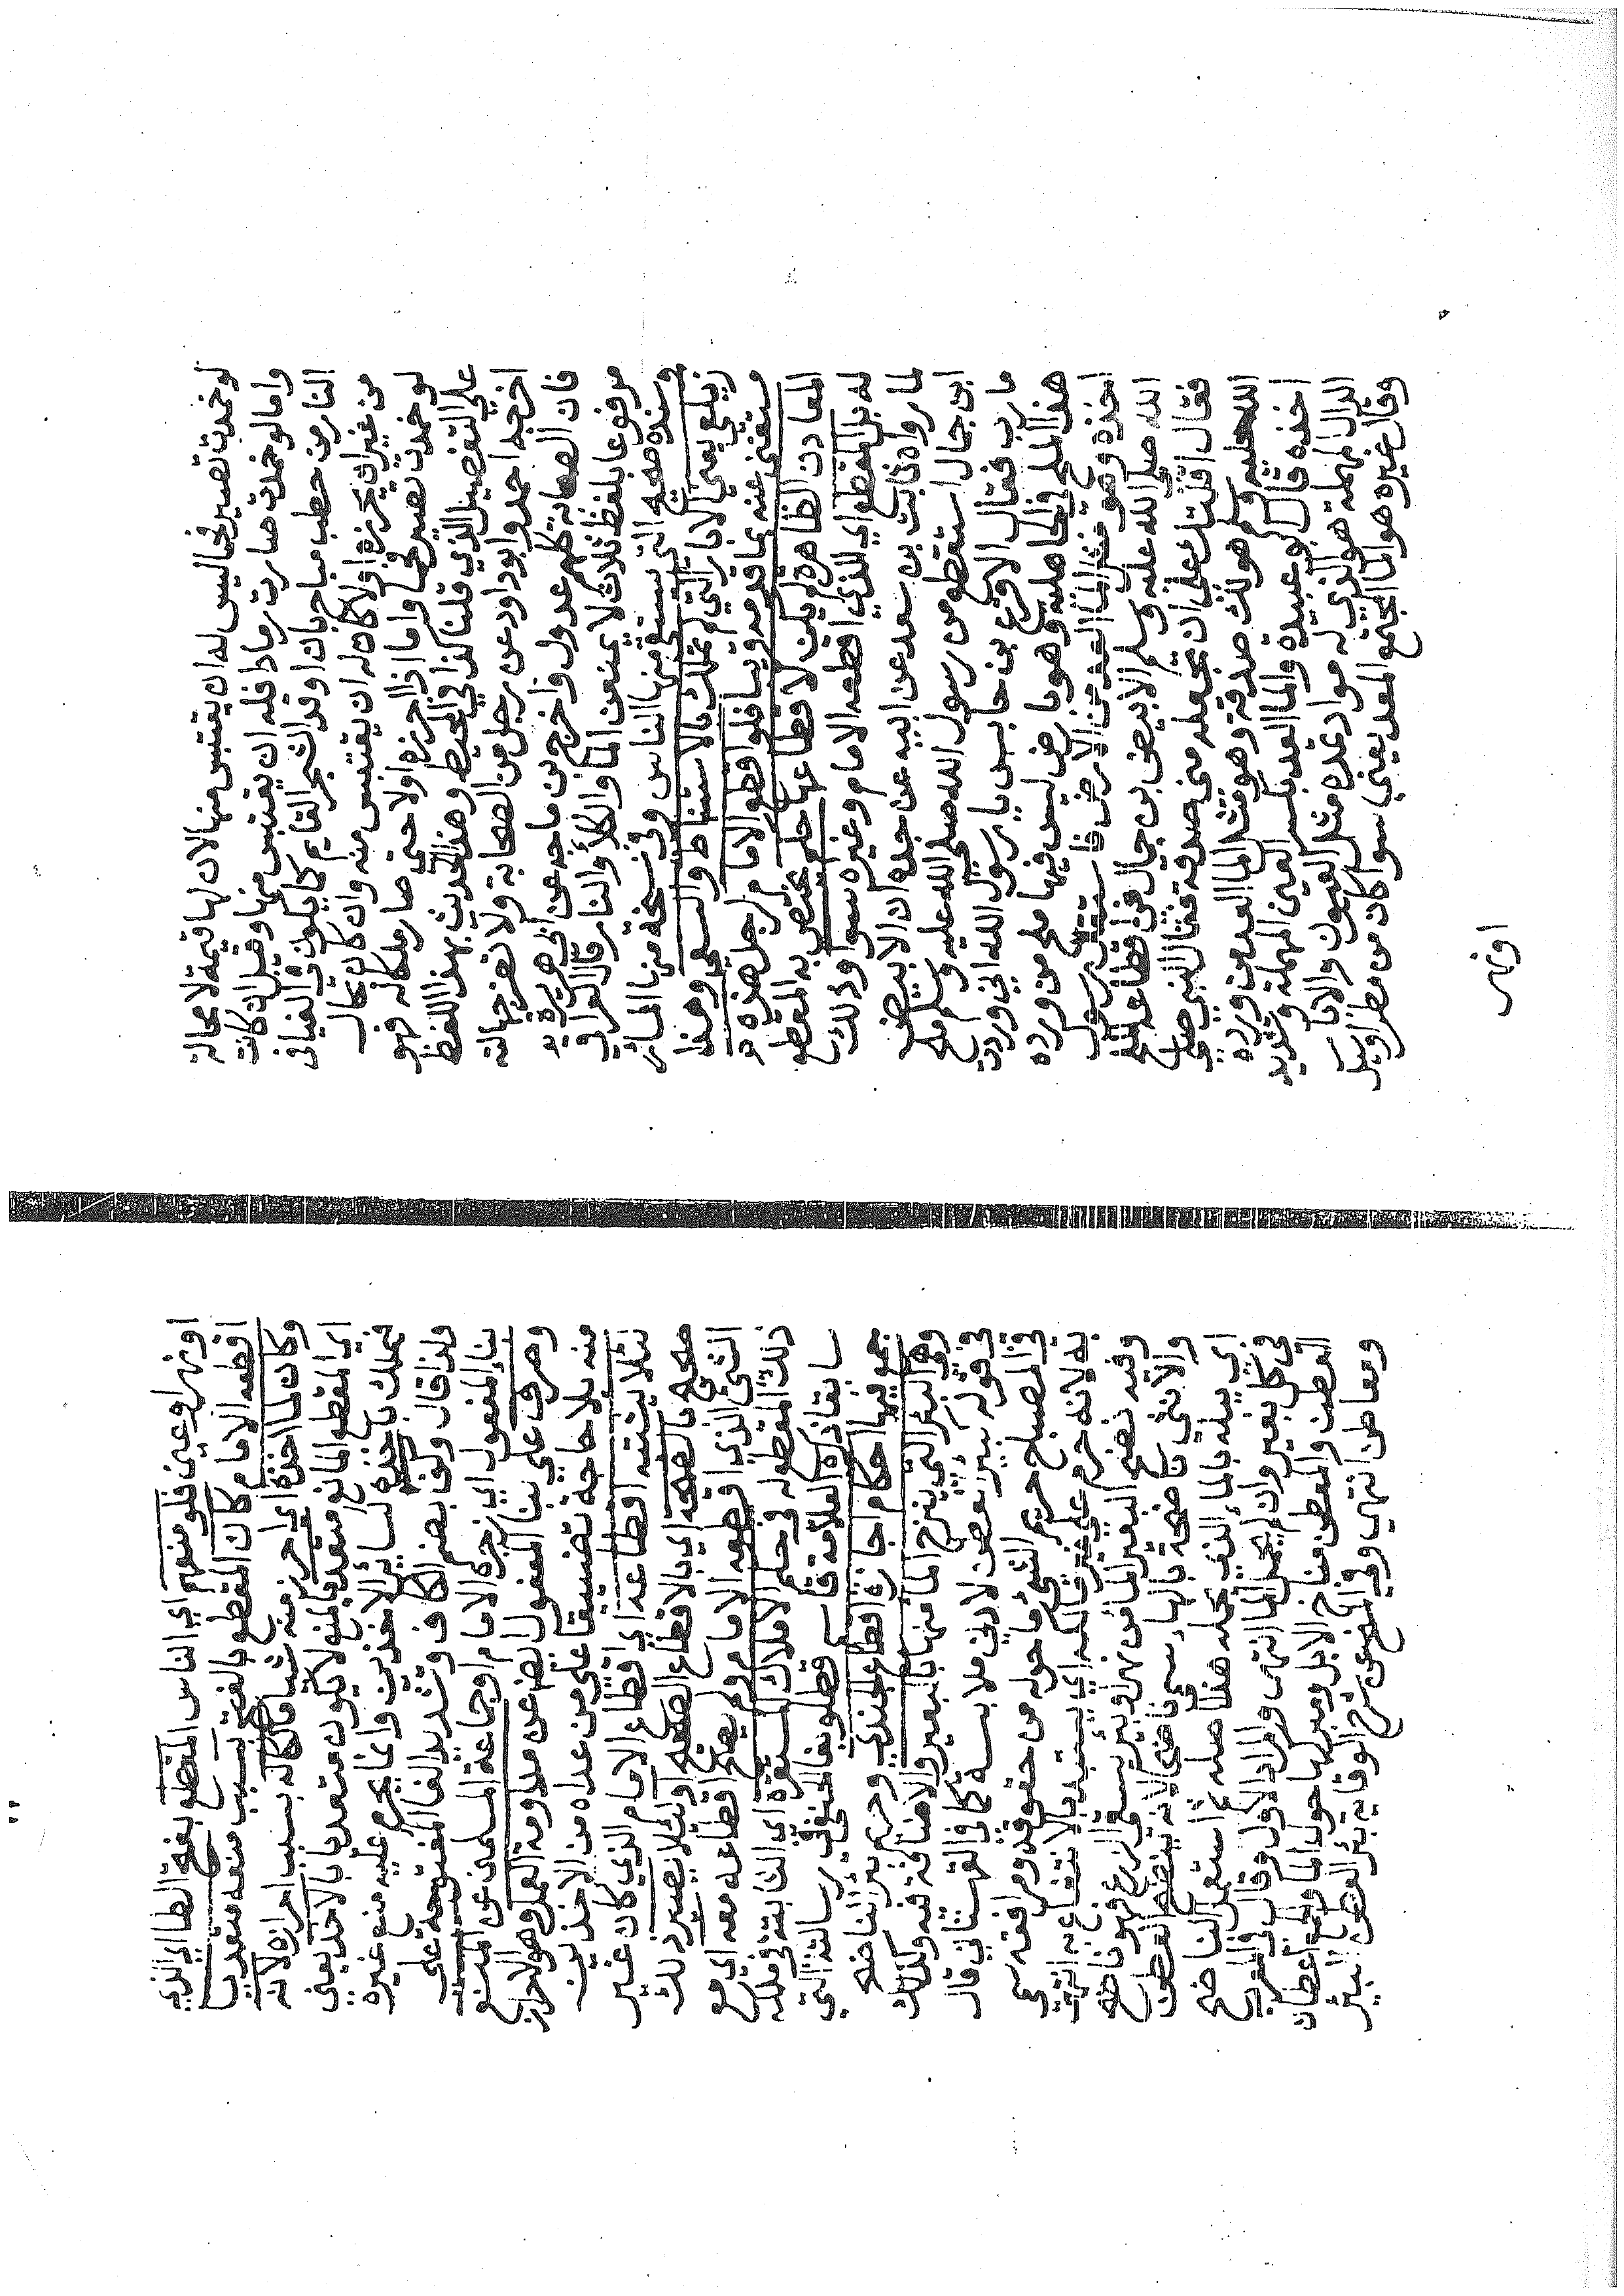 لو خمدت تصير فحما ليس له ان يقتبس منها لان لها قيمة لا محالة
واما لو خمدت صارت رمادا فله ان يقتبس منها وقيل ان كانت
النار من حطب مباح بان اوقد الشجر القايم كما يكون في الفيافي
من غير ان يحرزه اولا كان له ان يقتبس منه وان كان بحال
لو خمدت تصير فحما واما اذا احرزه اولا حتى صار ملكا له فهو
علي التفصيل الذي قلنا كذا في المحيط وهذا الحديث بهذا اللفظ
اخرجه احمد وابوداود عن رجل من الصحابة ولا تضر جهالته
فان الصحابة كلهم عدول واخرج بن ماجه عن ابي هريرة
مرفوعا بلفظ ثلاث لا يمنعن الماء والكلأ والنار قال العراقي
وسنده صحيح التي يستقي منها الناس وفي نسخة منها المسلمون
زيلعي يعني الابار التي لم تملك بالاستنباط والسعي وهذا
مستغنى عنه بما قدمه ويسا فلو اقطع الامام لرجل هذه
المعادن الظاهرة لم يكن لاقطاعها حكم يختص به المقطع
له بل المقطع اي الذي اقطعه الامام وغيره سوا وذلك
لما رواه ثابت بن سعد عن ابيه عن جده ان الابيض
ابن جمال استقطع من رسول الله صلى الله عليه وسلم ملح
مارب فقال الاقرع بن حابس يا رسول الله اني وردت
هذا الملح في الجاهلية وهو بارض ليس فيها ملح من ورده
اخذه وهو مثل الماء العد من الارض فاستقال رسول
الله صلى الله عليه وسلم الابيض بن جمال في اقطاعه الملح
فقال اقلتك على ان تجعله مني صدقة فقال النبي صلى
الله عليه وسلم هو لك صدقة وهو مثل الماء العد من ورده
اخذه قال ابو عبيدة والماء العد بكسر العين المهملة وتشديد
الدال المهملة هو الذي له مواد تمده مثل العيون والابار
وقال غيره هو الماء المجتمع المعد يعني سوا كان من مطر او سيل
او نهر
او نهر او عين فلو منعهم اي الناس المقطع بفتح الطا اي الذي
اقطعه الامام كان المقطع بالفتح بسبب منعه متعديا
وكان لما اخذه اي احرز منه شيا مالكا له بسبب احرازه لانه
اي المقطع المانع متعد بالمنع لا يكون متعديا بالاخذ يعني
يملك باخذه كسائر الاخذين وانما يحرم عليه منع غيره
ولذا قال وكف بضم الكاف وتشديد الفا المفتوحة على
بنا المفعول اي زجره الامام او جماعة المسلمين عن المنع
وصرف على بنا المفعول ايضا عن مداومة العمل وهو الاحراز
منه بلا حاجة تضييقا على من عداه من الاخذين
لئلا يشتبه اقطاعه اي اقطاع الامام الذي كان غير
صحيح بالصحة اي بالاقطاع الصحيح او لئلا يصير ذلك
الشي الذي اقطعه الامام ولم يصح اقطاعه معه اي مع
ذلك المقطع له في حكم الاملاك المستقرة اي الثابتة في ملكه
سابقا ذكره العلامة قاسم بن قطلوبغا الحنفي في رسالته التي
جمع فيها احكام اجازة اقطاع الجندي وحريم بئر الناضح
وهي البئر التي ينزح الماء منها بالبعير والاضافة فيه وكذلك
في قوله بير العطن لادنى ملابسة كما في القهستاني قال
في المصباح حريم الشي ما حوله من حقوقه ومرافقه سمي
به لانه حرم على غير مالكه اي يستبد بالانتفاع به انتهى
وفيه نضح البعير الماء من نهر او بير يسقي الزرع فهو ناضح
والانثى ناضحة بالهاء سمي ناضحا لانه ينضح العطش
اي يبله بالماء الذي يحمله هذا اصله ثم استعمل الناضح
في كل بعير وان لم يحمل الماء انتهى والمراد الاول وقال في المغرب
العطن والمعطن مناخ الابل ومبركها حول الماء والجمع اعطان
ومعاطن انتهى وفي المنح عن شرح الوقاية بئر العطن البير